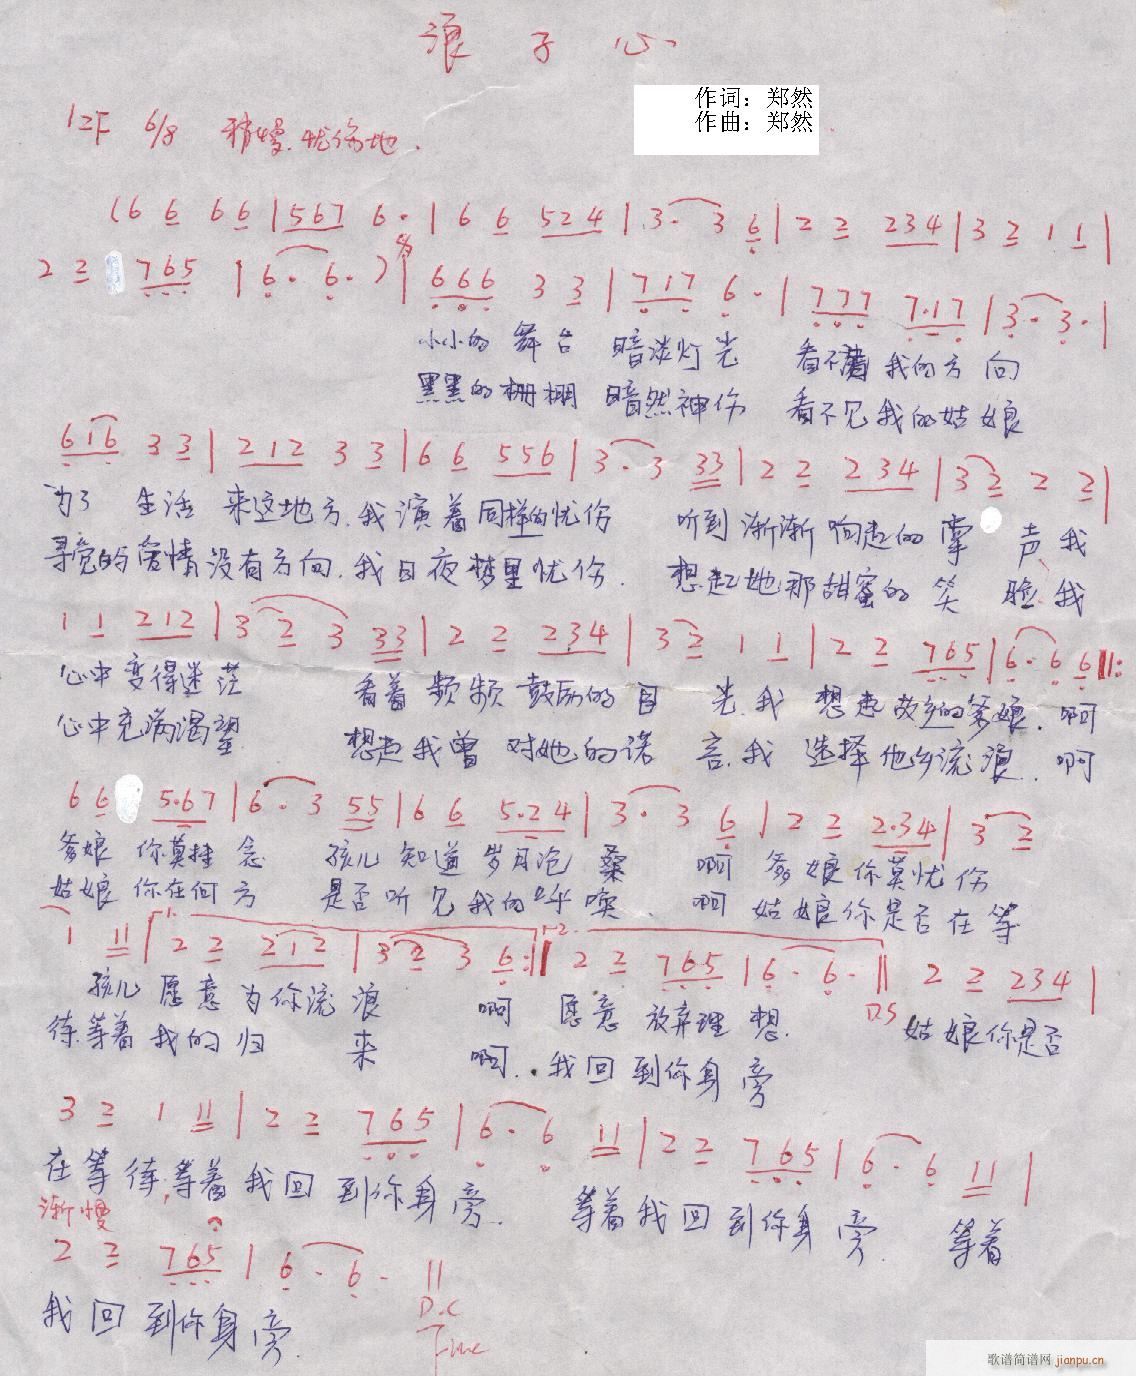 浪子心
作词：郑然
作曲：郑然
1=F 6/8 稍慢.忧伤地.
(6 6 6 6 | 5 6 7 6· | 6 6 5 2 4 | 3· 3 6 | 2 2 2 3 4 | 3 2 1 1 |
2 2 7 6 5 | 6· 6· ) | 6 6 6 3 3 | 7 1 7 6· | 7 7 7 7·1 7 | 3· 3· |
小小的 舞台 暗淡灯光 看不清我的方向
黑黑的栅栏 暗然神伤 看不见我的姑娘
6 1 6 3 3 | 2 1 2 3 3 | 6 6 5 5 6 | 3· 3 3 3 | 2 2 2 3 4 | 3 2 2 2 |
为了 生活 来这地方.我演着同样的忧伤 听到渐渐响起的掌 声 我
寻觅的爱情没有方向.我日夜梦里忧伤. 想起她那甜蜜的笑 脸 我
1 1 2 1 2 | 3 2 3 3 3 | 2 2 2 3 4 | 3 2 1 1 | 2 2 7 6 5 | 6· 6 6 ‖:
心中变得迷茫 看着频频鼓励的目 光.我 想起故乡的爹娘. 啊
心中充满渴望 想起我曾对她的诺 言.我 选择他乡流浪. 啊
6 6 5·6 7 | 6· 3 5 5 | 6 6 5·2 4 | 3· 3 6 | 2 2 2·3 4 | 3 2
爹娘 你莫挂念 孩儿知道岁月沧桑 啊 爹娘你莫忧伤
姑娘你在何方 是否听见我的呼唤. 啊 姑娘你是否在等
1 1 1 | 1. 2 2 2 1 2 | 3 2 3 6 :‖ 2. 2 2 7 6 5 | 6· 6· ‖ 2 2 2 3 4 |
孩儿愿意为你流浪 啊 愿意放弃理想. D.S 姑娘你是否
待.等着我的归 来 啊.·我回到你身旁
3 2 1 1 1 | 2 2 7 6 5 | 6· 6 1 1 | 2 2 7 6 5 | 6· 6 1 1 |
在等待,等着我回到你身旁. 等着我回到你身旁. 等着
渐慢
2 2 7 6 5 | 6· 6· ‖
我回到你身旁.
D.C
Fine
歌谱简谱网 jianpu.cn